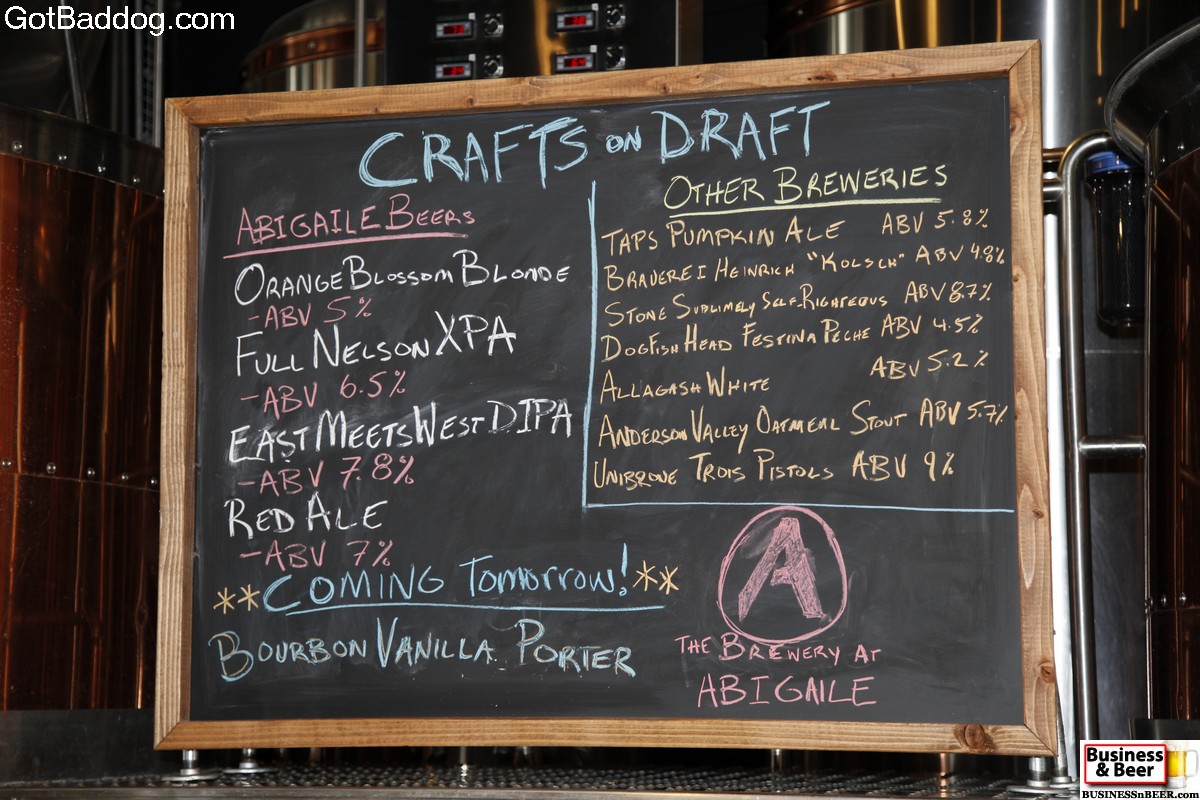 GotBaddog.com
CRAFTS ON DRAFT
ABIGAILE BEERS
ORANGE BLOSSOM BLONDE
-ABV 5%
FULL NELSON XPA
-ABV 6.5%
EAST MEETS WEST DIPA
-ABV 7.8%
RED ALE
-ABV 7%
**COMING TOMORROW!**
BOURBON VANILLA PORTER
OTHER BREWERIES
TAPS PUMPKIN ALE ABV 5.8%
BRAUEREI HEINRICH "KOLSCH" ABV 4.8%
STONE SUBLIMELY SELF-RIGHTEOUS ABV 8.7%
DOGFISH HEAD FESTINA PECHE ABV 4.5%
ALLAGASH WHITE ABV 5.2%
ANDERSON VALLEY OATMEAL STOUT ABV 5.7%
UNIBROUE TROIS PISTOLS ABV 9%
A
THE BREWERY AT
ABIGAILE
Business
& Beer
BUSINESSnBEER.com